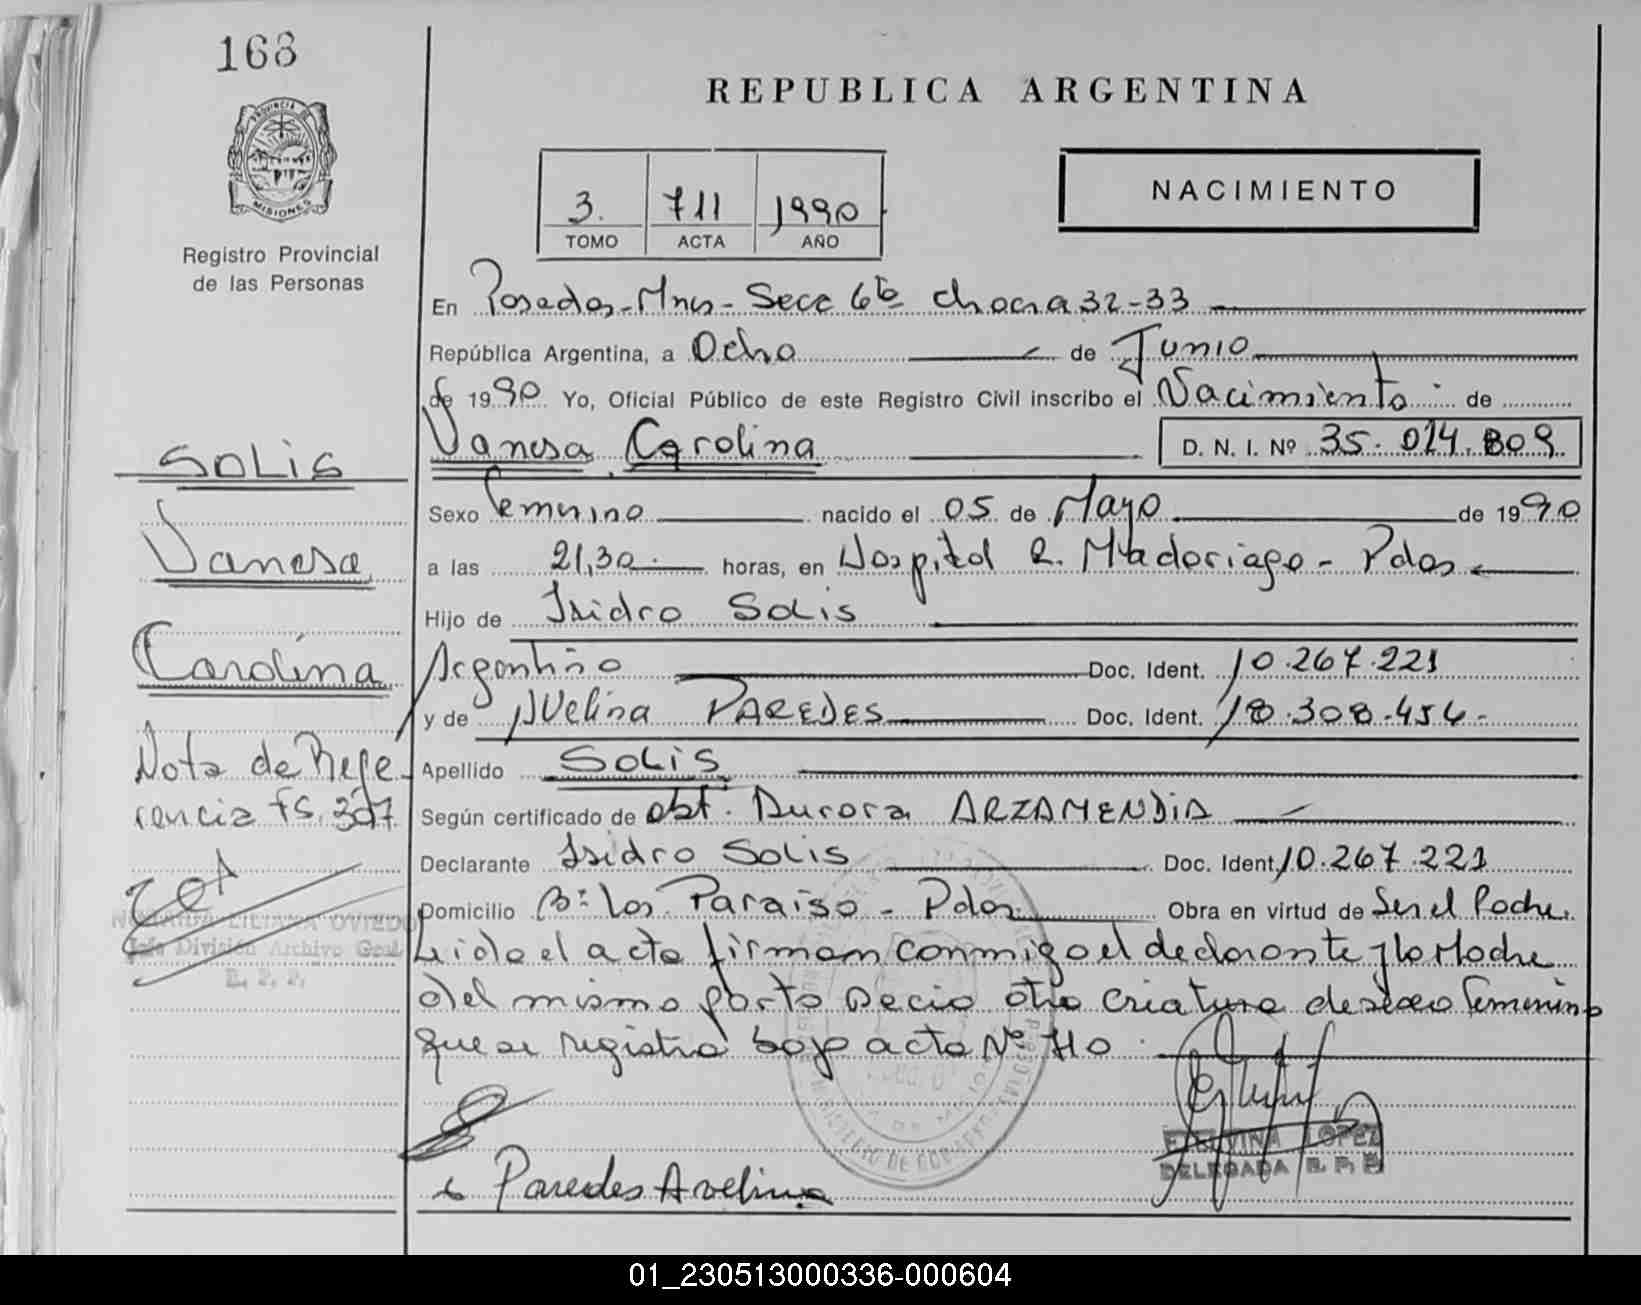 168
PROVINCIA
MISIONES
Registro Provincial
de las Personas
REPUBLICA ARGENTINA
NACIMIENTO
3. 711 1990
TOMO ACTA AÑO
En Posadas-Mnes- Secc 6ta chacra 32-33
República Argentina, a Ocho de Junio
de 1990 Yo, Oficial Público de este Registro Civil inscribo el Nacimiento de
Vanesa Carolina D. N. I. Nº 35.014.809
Sexo Femenino nacido el 05 de Mayo de 1990
a las 21,30 horas, en Hospital R. Madariaga - Pdas
Hijo de Isidro SOLIS
Argentino Doc. Ident. 10.267.221
y de Avelina PAREDES Doc. Ident. 18.308.454-
Apellido SOLIS
Según certificado de obst. Aurora ARZAMENDIA
Declarante Isidro SOLIS Doc. Ident. 10.267.221
Domicilio Bº: Los Paraiso - Pdas Obra en virtud de Ser el Padre.
Leida el acta firman conmigo el declarante y la Madre
del mismo parto nacio otra criatura de sexo femenino
que se registra bajo acta Nº 710
Paredes Avelina
ETELVINA LOPEZ
DELEGADA R. P. P.
SOLIS
Vanesa
Carolina
Nota de Refe-
rencia fs. 307
LILIANA OVIEDO
Jefe División Archivo Gral.
R. P. P.
MINISTERIO DE GOBIERNO
01_230513000336-000604